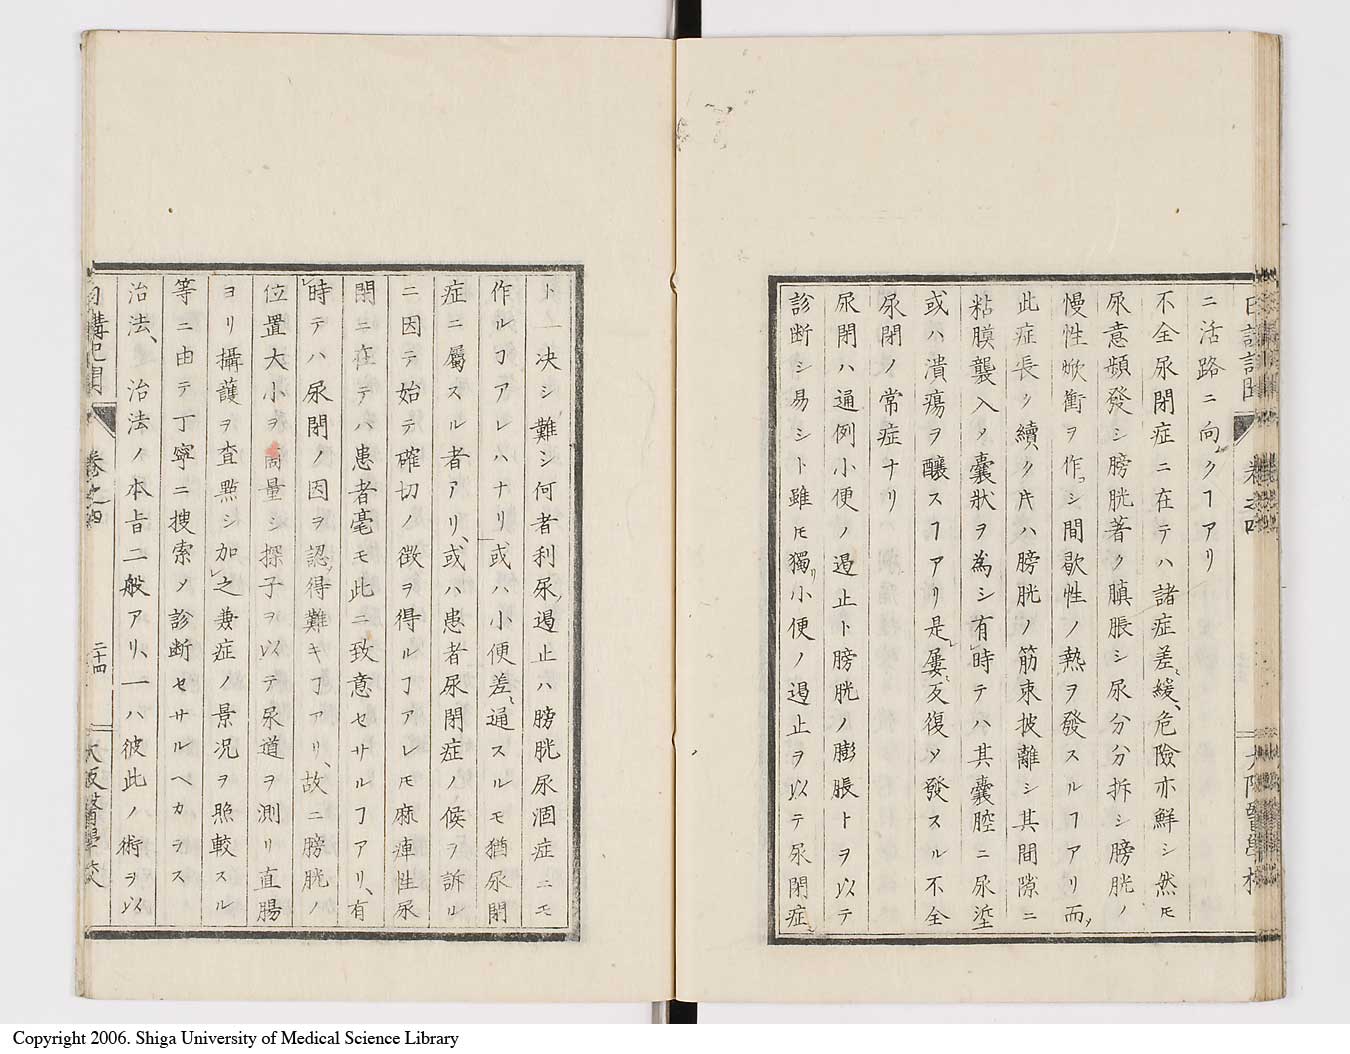 ニ活路ニ向クヿアリ
不全尿閉症ニ在テハ諸症差緩、危險亦鮮シ然𪜈
尿意頻發シ膀胱著ク䐜脹シ尿分分拆シ膀胱ノ
慢性焮衝ヲ作シ間歇性ノ熱ヲ發スルヿアリ而
此症長ク續ク𪜈ハ膀胱ノ筋束披離シ其間隙ニ
粘膜襲入メ囊狀ヲ為シ有時テハ其囊腔ニ尿塗
或ハ潰瘍ヲ釀スヿアリ是屢反復ソ發スル不全
尿閉ノ常症ナリ
尿閉ハ通例小便ノ遏止ト膀胱ノ膨脹トヲ以テ
診断シ易シト雖𪜈獨小便ノ遏止ヲ以テ尿閉症
ト一决シ難シ何者利尿遏止ハ膀胱尿涸症ニモ
作ルヿアレハナリ或ハ小便差通スルモ猶尿閉
症ニ屬スル者アリ、或ハ患者尿閉症ノ候ヲ訴ル
ニ因テ始テ確切ノ徴ヲ得ルヿアレ𪜈麻痺性尿
閉ニ在テハ患者毫モ此ニ致意セサルヿアリ、有
時テハ尿閉ノ因ヲ認得難キヿアリ、故ニ膀胱ノ
位置大小ヲ商量シ探子ヲ以テ尿道ヲ測リ直腸
ヨリ攝護ヲ査㸃シ加之兼症ノ景况ヲ照較スル
等ニ由テ丁寧ニ捜索メ診断セサルヘカラス
治法、治法ノ本旨二般アリ、一ハ彼此ノ術ヲ以
日講記聞 卷之四 二十四 大阪醫學校
Copyright 2006. Shiga University of Medical Science Library